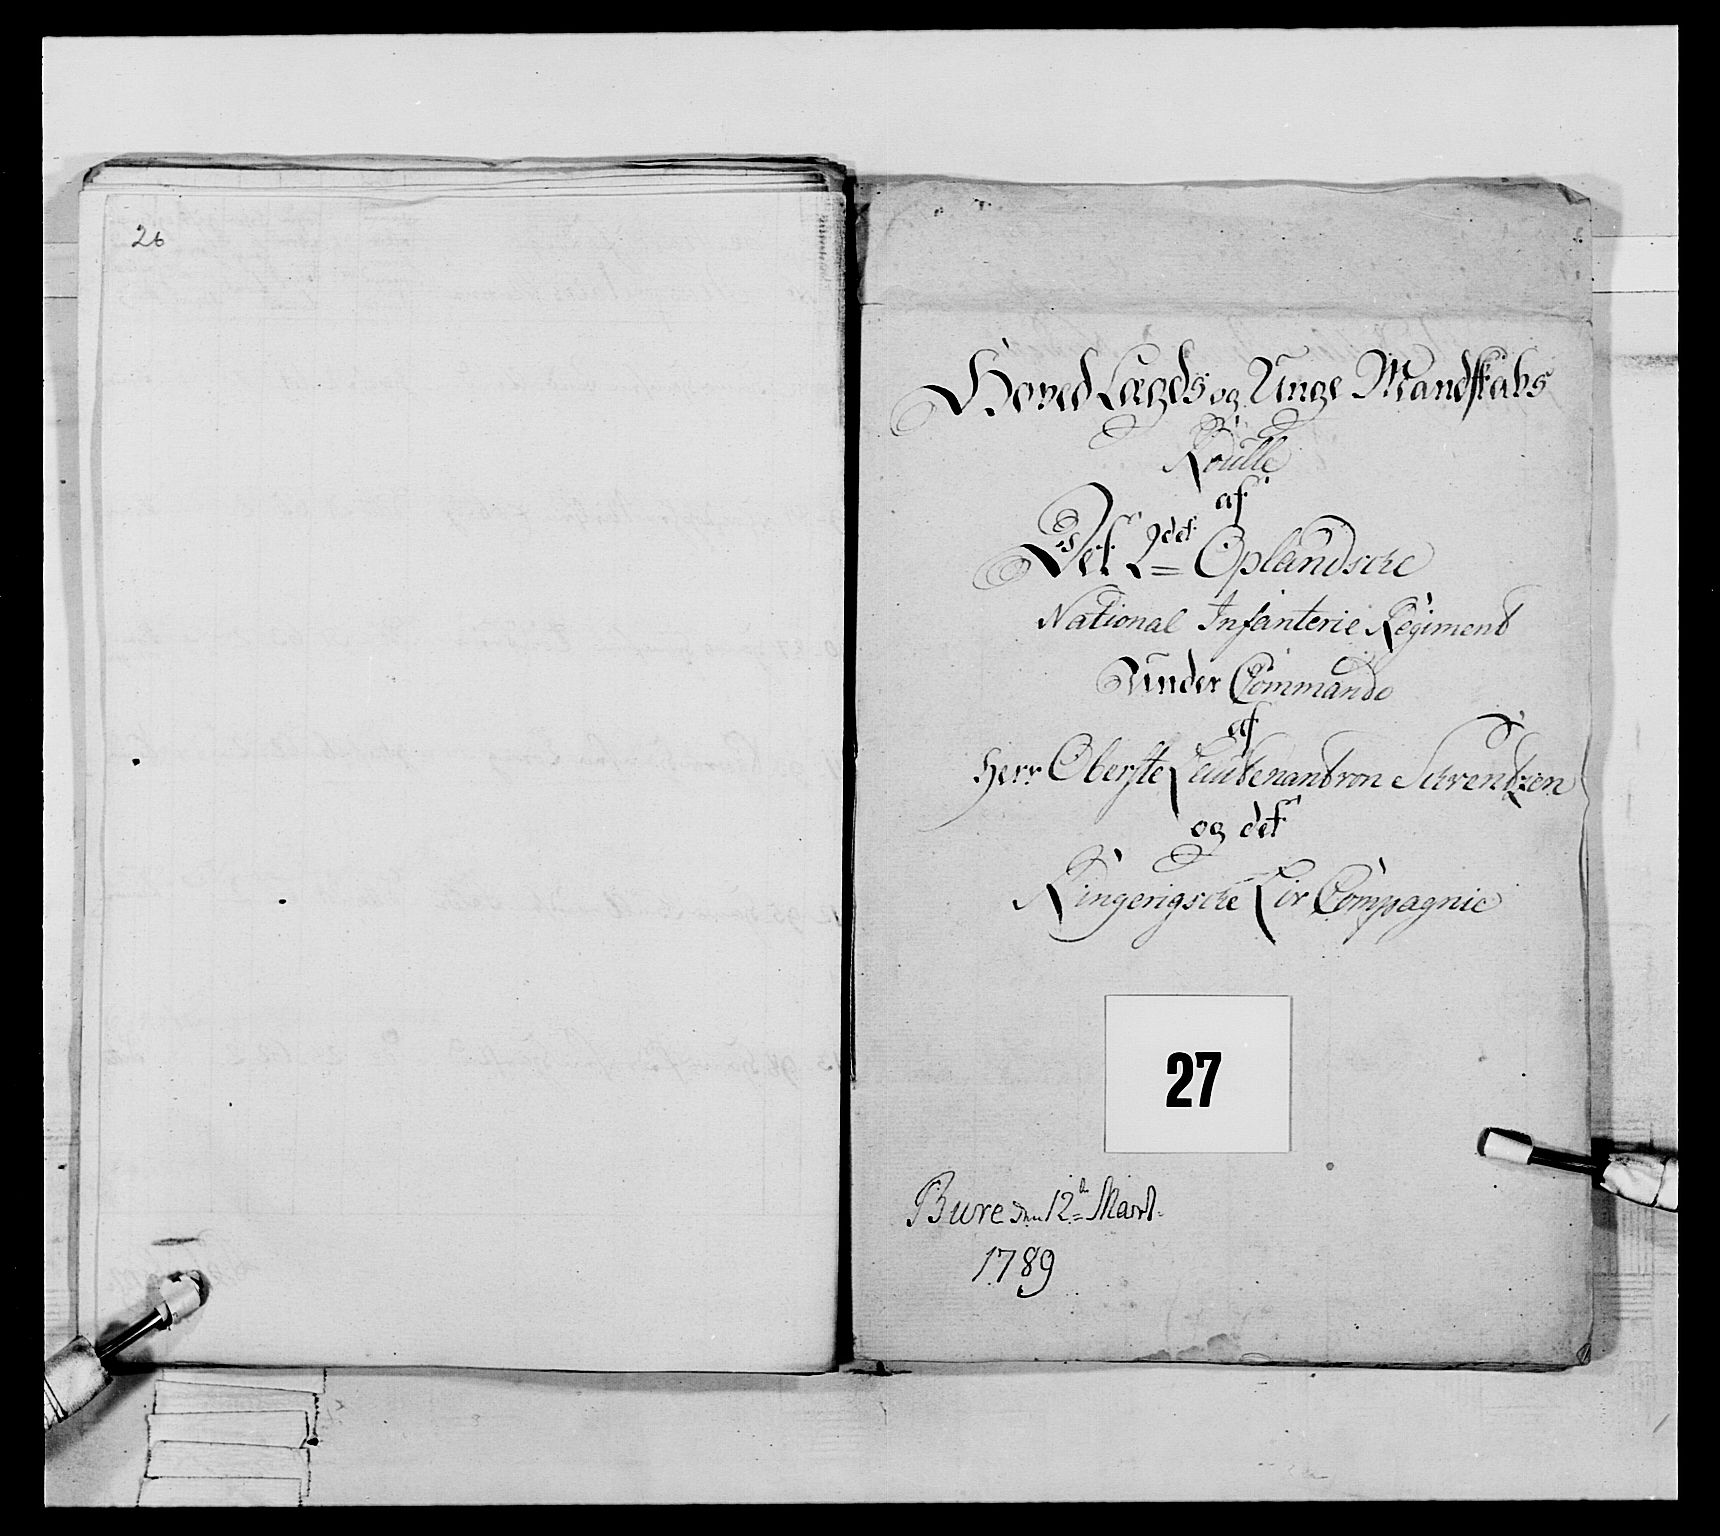 26
Hoved Lægds og Unge Mandskabs
Roulle
af
Det 2det Oplandsche
National Infanterie Regiment
Under Commando
af
Herr Oberste Leutenant von
og det
Ringerigsche Liv Compagnie
27
Bure den 12te Marti
1789